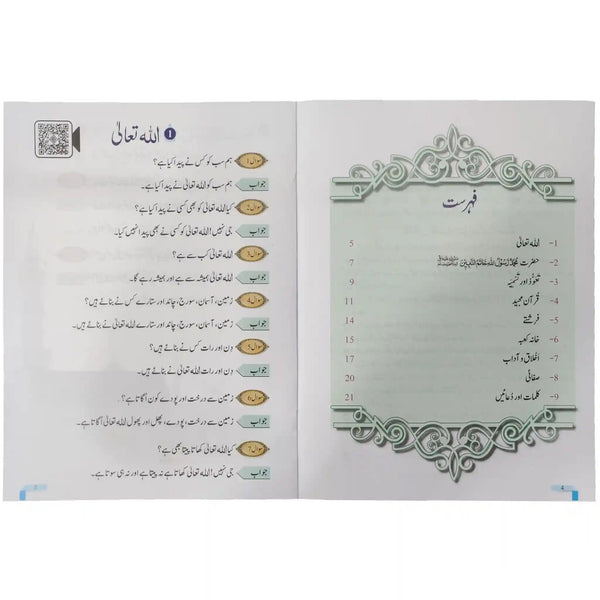 فہرست
1- اللہ تعالیٰ 5
2- حضرت محمد رسول اللہ خاتم النبیین ﷺ 7
3- تعوذ اور تسمیہ 9
4- قرآن مجید 11
5- فرشتے 14
6- خانہ کعبہ 15
7- اخلاق و آداب 17
8- صفائی 20
9- کلمات اور دُعائیں 21
4
1 اللہ تعالیٰ
سوال 1 ہم سب کو کس نے پیدا کیا ہے؟
جواب ہم سب کو اللہ تعالیٰ نے پیدا کیا ہے۔
سوال 2 کیا اللہ تعالیٰ کو بھی کسی نے پیدا کیا ہے؟
جواب جی نہیں! اللہ تعالیٰ کو کسی نے بھی پیدا نہیں کیا۔
سوال 3 اللہ تعالیٰ کب سے ہے؟
جواب اللہ تعالیٰ ہمیشہ سے ہے اور ہمیشہ رہے گا۔
سوال 4 زمین، آسمان، سورج، چاند اور ستارے کس نے بنائے ہیں؟
جواب زمین، آسمان، سورج، چاند اور ستارے اللہ تعالیٰ نے بنائے ہیں۔
سوال 5 دن اور رات کس نے بنائے ہیں؟
جواب دن اور رات اللہ تعالیٰ نے بنائے ہیں۔
سوال 6 زمین سے درخت اور پودے کون اُگاتا ہے؟
جواب زمین سے درخت، پودے، پھل اور پھول اللہ تعالیٰ اُگاتا ہے۔
سوال 7 کیا اللہ تعالیٰ کھاتا پیتا بھی ہے؟
جواب جی نہیں! اللہ تعالیٰ نہ کھاتا ہے نہ پیتا ہے اور نہ ہی سوتا ہے۔